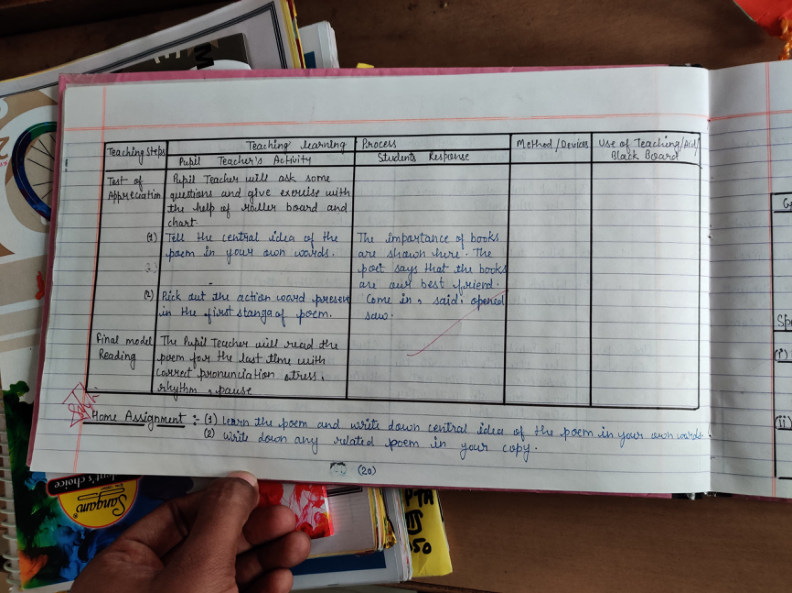 Teaching Steps
Teaching learning Process
Method/Devices
Use of Teaching/Aid/
Black Board
Pupil Teacher's Activity
Students Response
Test of
Appreciation
Pupil Teacher will ask some
questions and give exercise with
the help of roller board and
chart.
(1) Tell the central idea of the
poem in your own words.
The importance of books
are shown here. The
poet says that the books
are our best friend.
(2) Pick out the action word present
in the first stanza of poem.
Come in, said, opened
saw.
Final model
Reading
The Pupil Teacher will read the
poem for the last time with
correct pronunciation, stress,
rhythm, pause
Home Assignment :- (1) Learn the poem and write down central idea of the poem in your own words.
(2) Write down any related poem in your copy.
(20)
(i)
(ii)
Sangam
student's choice
50